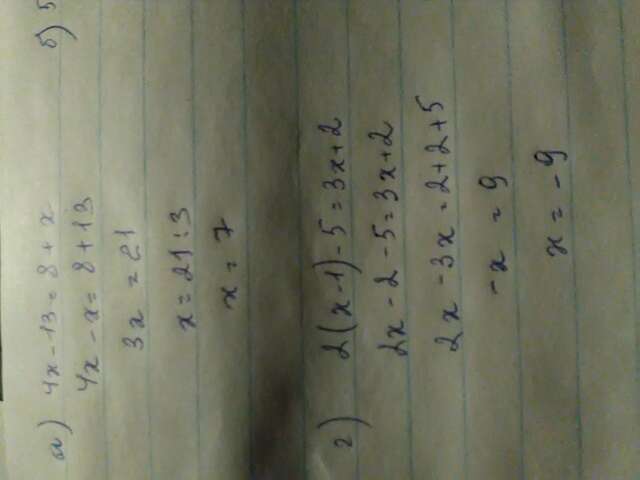 а) 4x - 13 = 8 + x
4x - x = 8 + 13
3x = 21
x = 21 : 3
x = 7
б) 5
г) 2(x - 1) - 5 = 3x + 2
2x - 2 - 5 = 3x + 2
2x - 3x = 2 + 2 + 5
-x = 9
x = -9